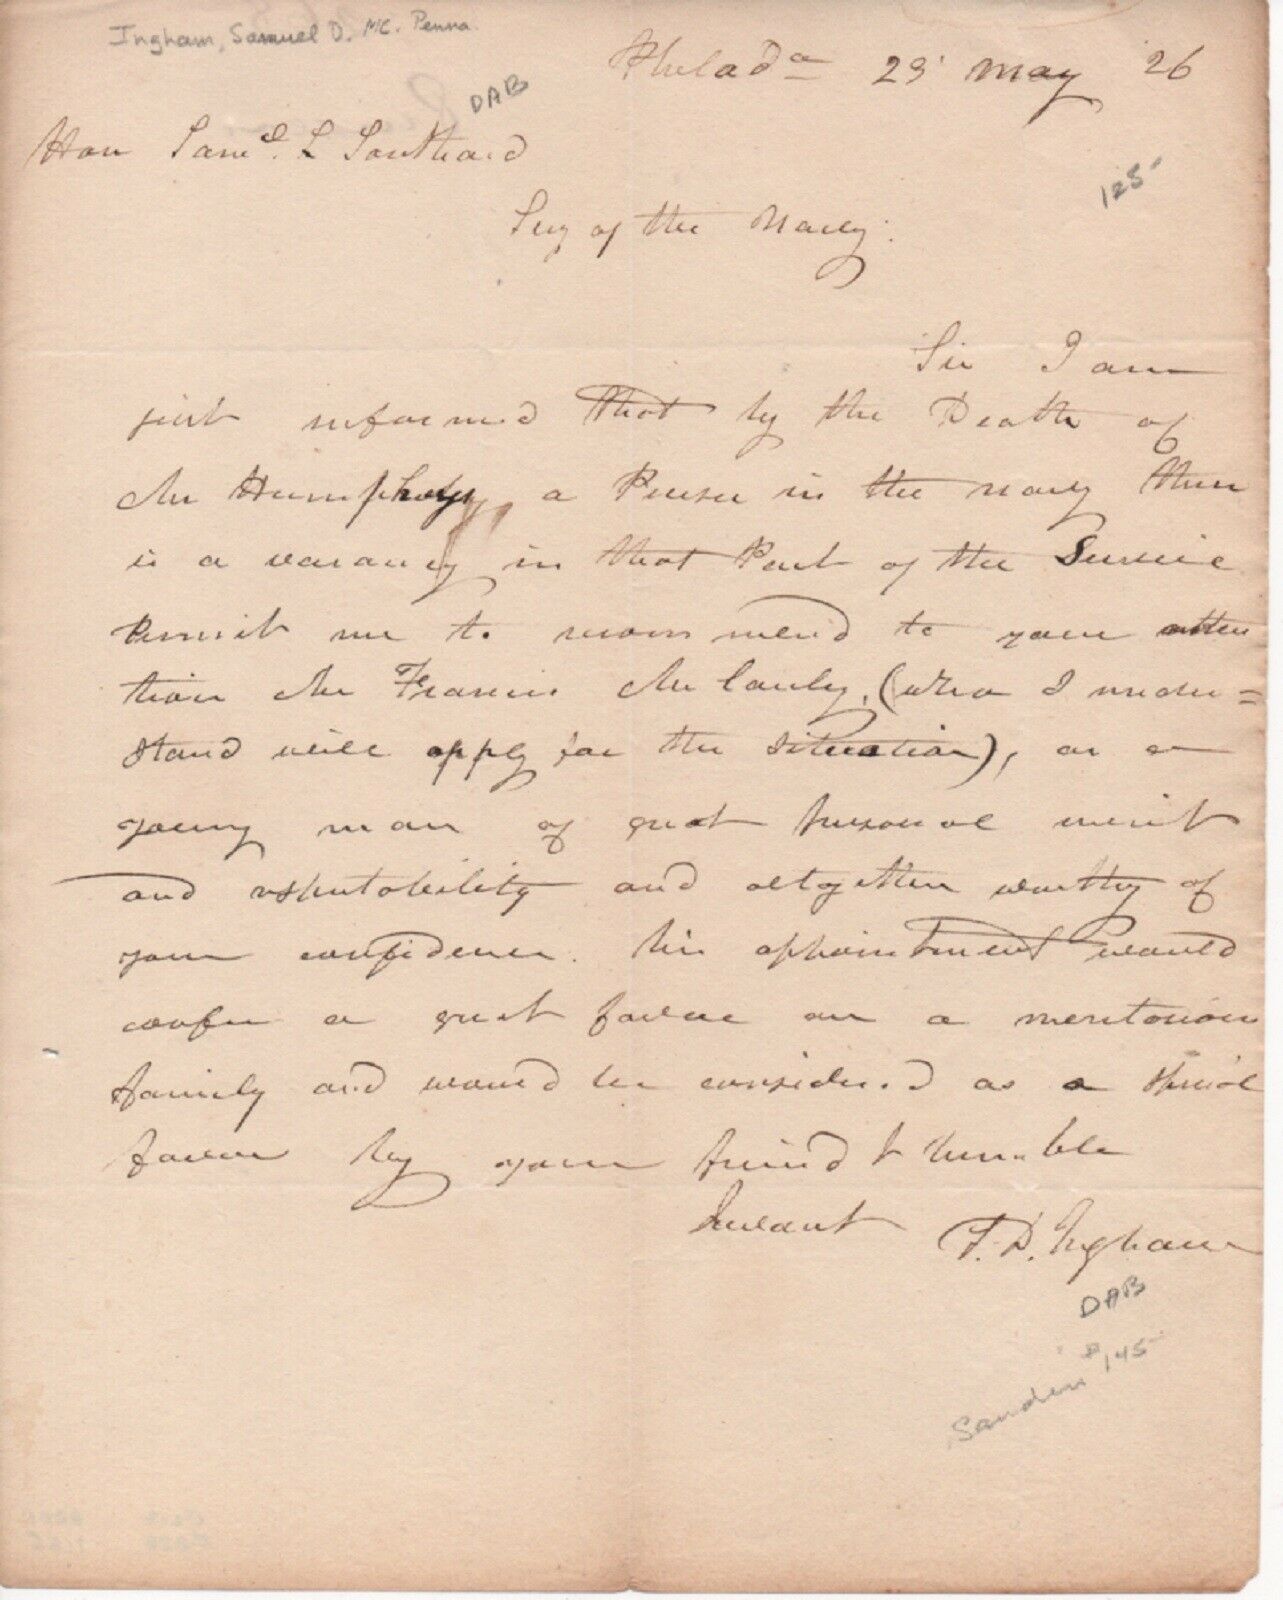 Ingham, Samuel D. MC. Penna.
Philada 23 May 26
DAB
Hon Saml. L Southard
125-
Secy of the Navy.
Sir I am
just informed that by the Death of
Mr Humphreys, a Purser in the navy there
is a vacancy in that Part of the Service
Permit me to recommend to your atten
tion Mr Francis McCauley, (who I under=
stand will apply for the situation), as a
young man of great personal merit
and respectability and altogether worthy of
your confidence. his appointment would
confer a great favour on a meritorious
family and would be considered as a special
favour by your friend & humble
Servant S. D. Ingham
DAB
$145-